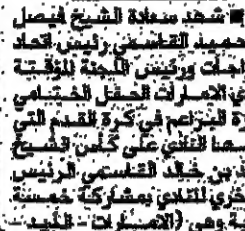 ■ شهد سعادة الشيخ فيصل
حميد القاسمي رئيس اتحاد
ورئيس اللجنة المؤقتة
ي الامارات الحفل الختامي
ة البراعم في كرة القدم التي
النادي على كأس الشيخ
بن خالد القاسمي الرئيس
ري للنادي بمشاركة خمسة
ية وهي (الامارات -